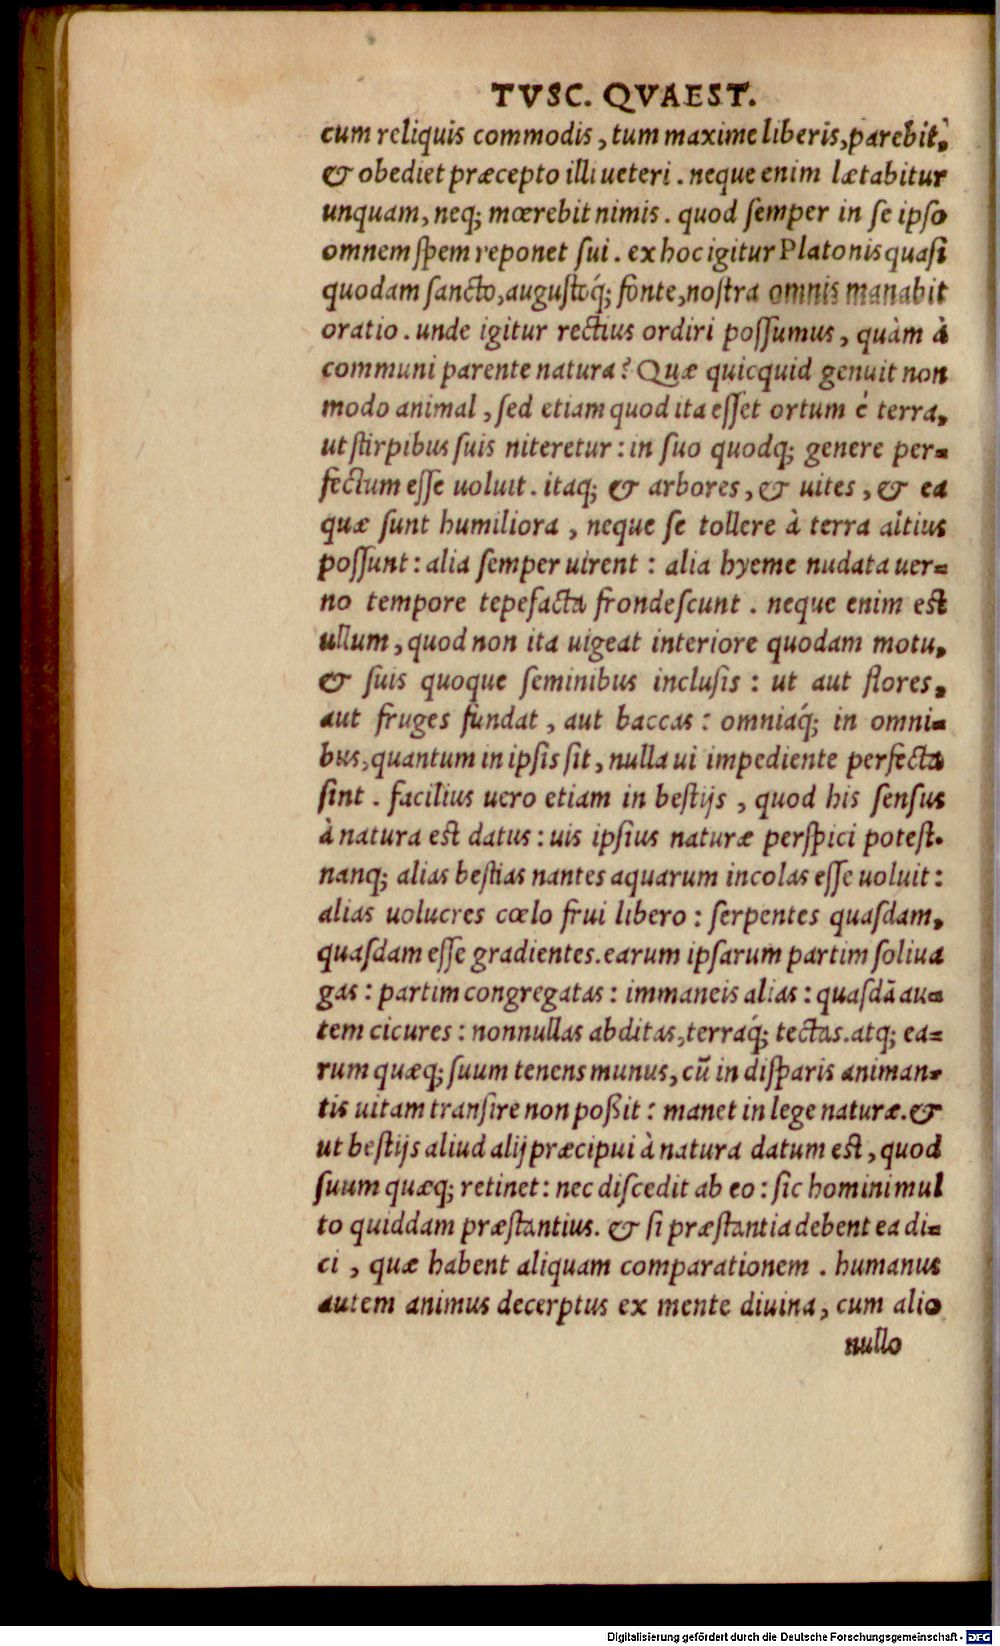 TVSC. QVAEST.
cum reliquis commodis, tum maxime liberis, parebit,
& obediet præcepto illi ueteri. neque enim lætabitur
unquam, neq; mœrebit nimis. quod semper in se ipso
omnem spem reponet sui. ex hoc igitur Platonis quasi
quodam sancto, augustoq́; fonte, nostra omnis manabit
oratio. unde igitur rectius ordiri possumus, quàm à
communi parente natura? Quæ quicquid genuit non
modo animal, sed etiam quod ita esset ortum é terra,
ut stirpibus suis niteretur: in suo quodq; genere per=
fectum esse uoluit. itaq; & arbores, & uites, & ea
quæ sunt humiliora, neque se tollere à terra altius
possunt: alia semper uirent: alia hyeme nudata uer=
no tempore tepefacta frondescunt. neque enim est
ullum, quod non ita uigeat interiore quodam motu,
& suis quoque seminibus inclusis: ut aut flores,
aut fruges fundat, aut baccas: omniaq́; in omni=
bus, quantum in ipsis sit, nulla ui impediente perfecta
sint. facilius uero etiam in bestijs, quod his sensus
à natura est datus: uis ipsius naturæ perspici potest.
nanq; alias bestias nantes aquarum incolas esse uoluit:
alias uolucres cœlo frui libero: serpentes quasdam,
quasdam esse gradientes. earum ipsarum partim soliua
gas: partim congregatas: immaneis alias: quasdã au=
tem cicures: nonnullas abditas, terraq́; tectas. atq; ea=
rum quæq; suum tenens munus, cũ in disparis animan=
tis uitam transire non poßit: manet in lege naturæ. &
ut bestijs aliud alij præcipui à natura datum est, quod
suum quæq; retinet: nec discedit ab eo: sic homini mul
to quiddam præstantius. & si præstantia debent ea di=
ci, quæ habent aliquam comparationem. humanus
autem animus decerptus ex mente diuina, cum alio
nullo
Digitalisierung gefördert durch die Deutsche Forschungsgemeinschaft - DFG